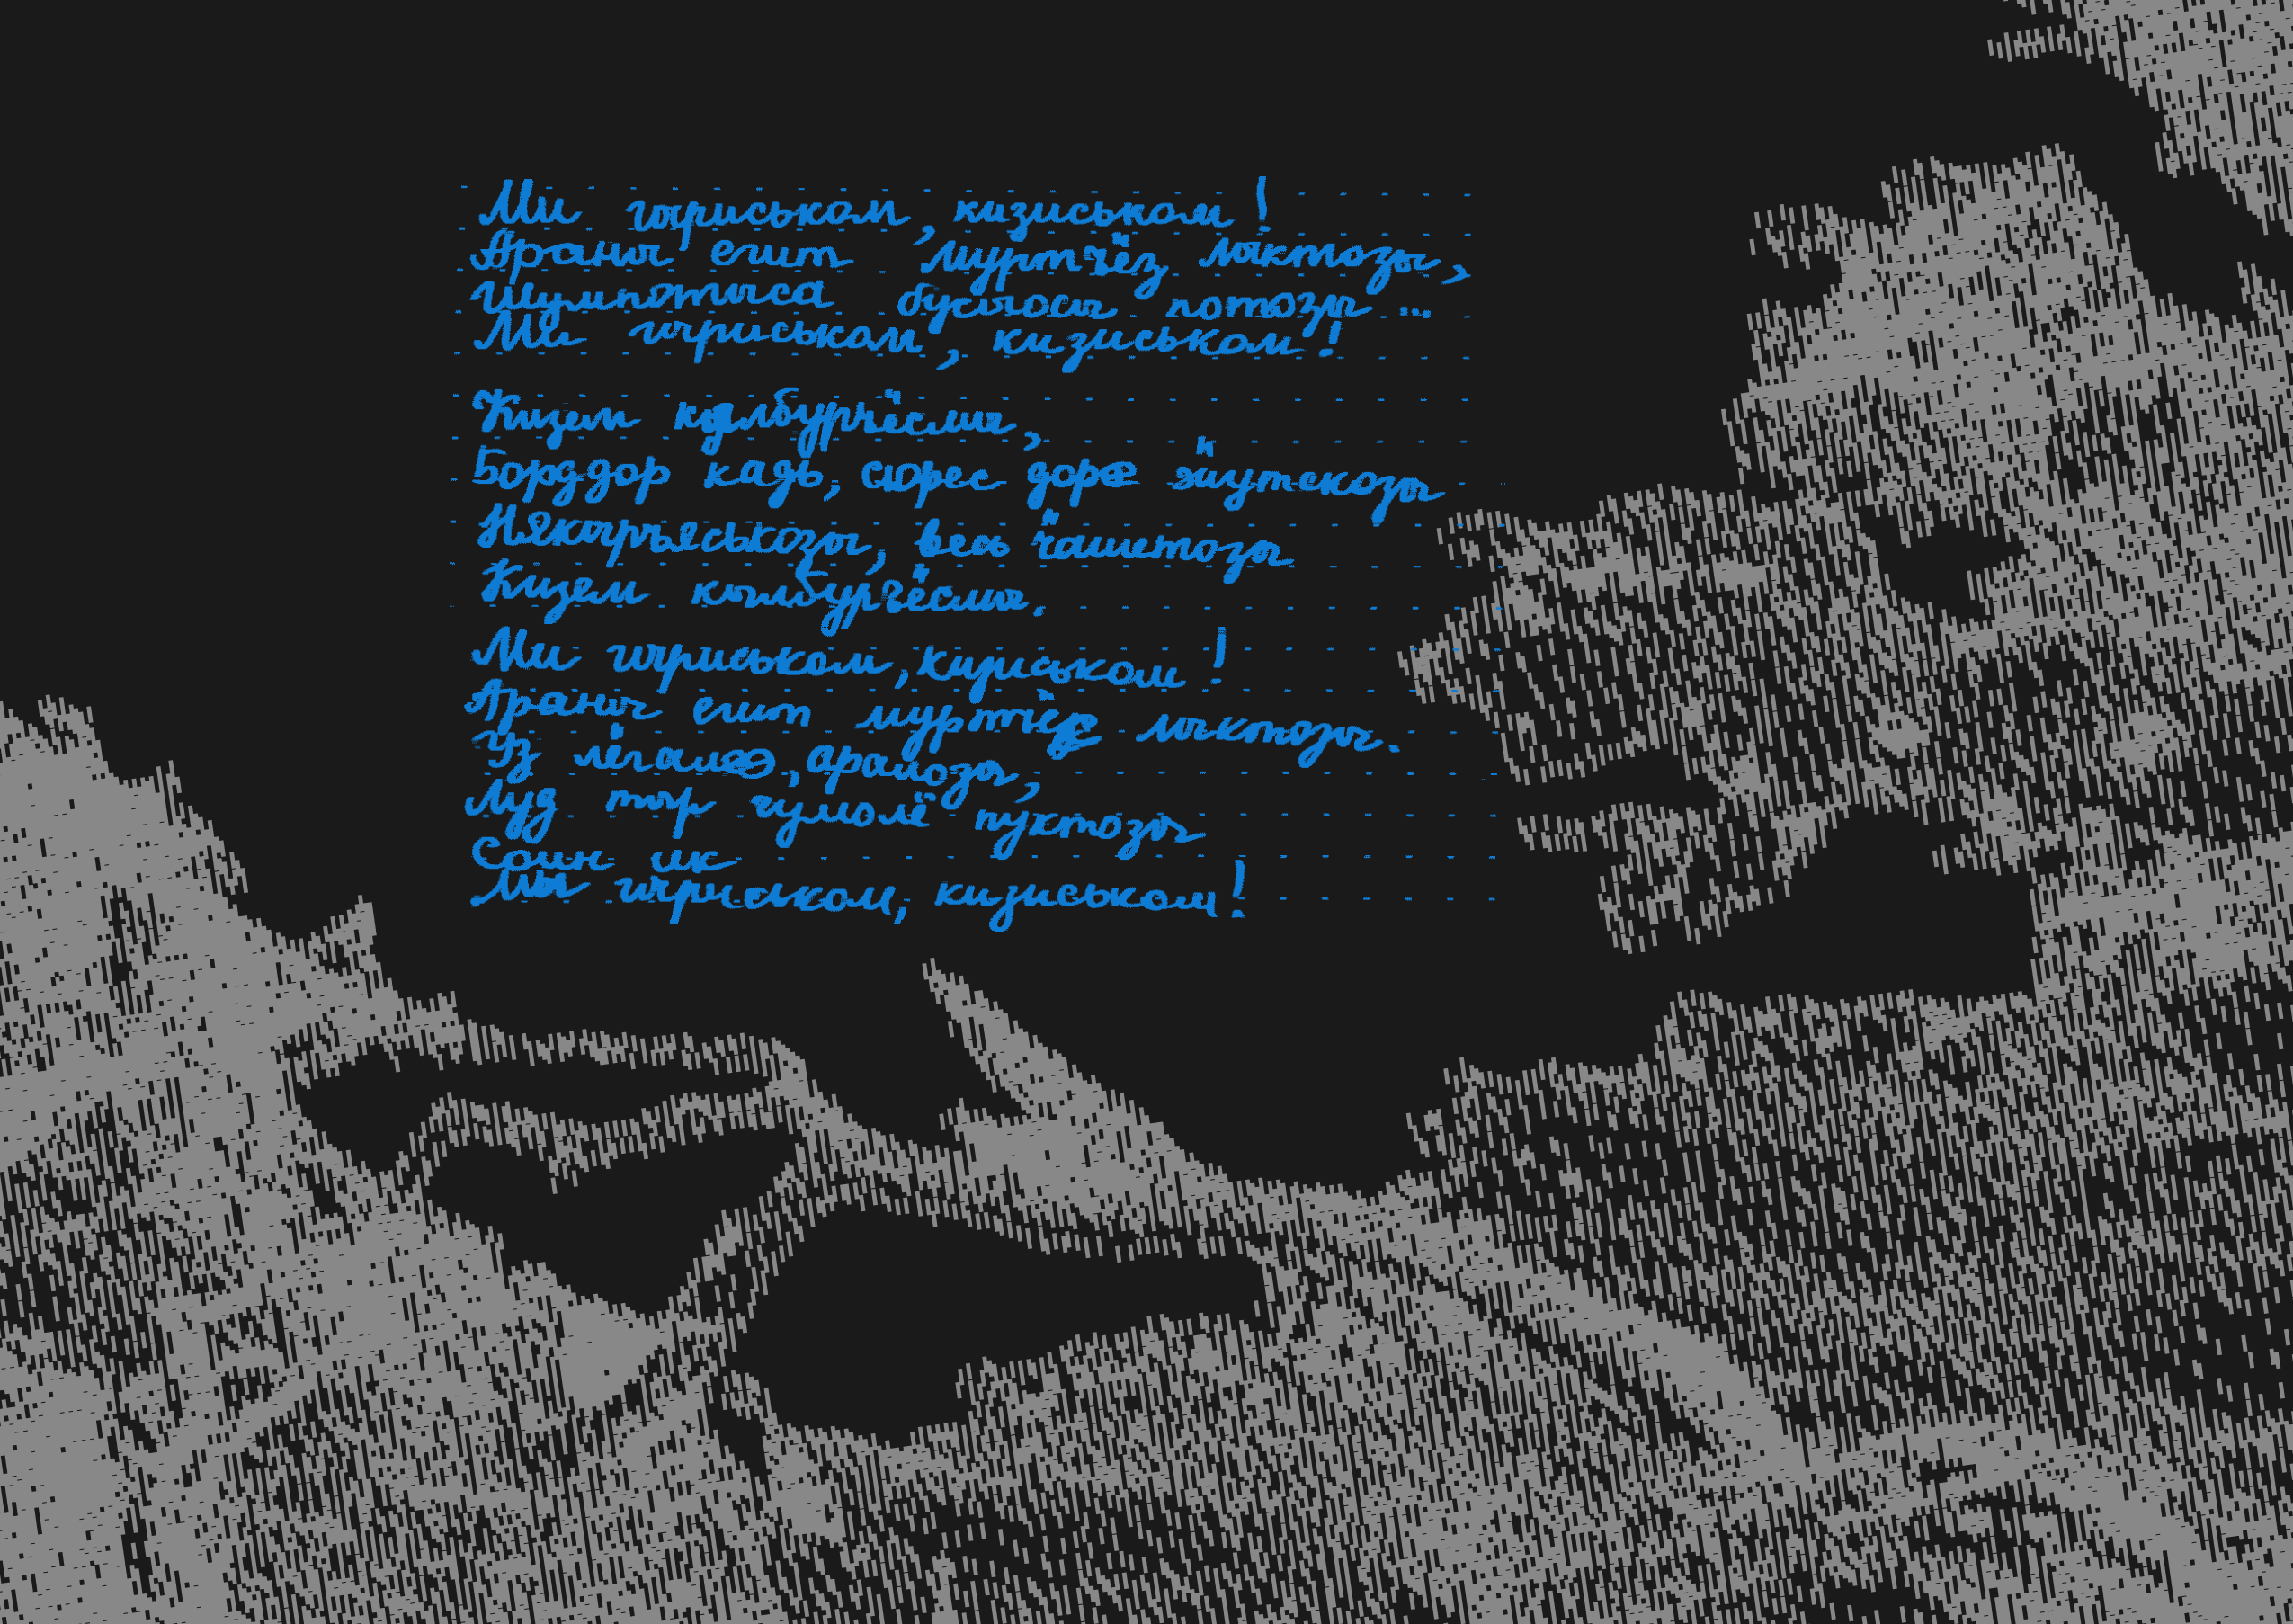 Ми гыриськом, кизиськом!
Араны егит муртъёз лыктозы,
Шумпотыса бусыосы потозы...
Ми гыриськом, кизиськом!
Кизем кылбуръёсмы,
Борддор кадь, сюрес доре ӝутскозы
Някыръяськозы, весь ӵашетозы
Кизем кылбуръёсмы.
Ми гыриськом, кизиськом!
Араны егит муртъёс лыктозы.
Уз лёгалэ, аралозы,
Луд тыр чумолё пуктозы
Соин ик
Мы гыриськом, кизиськом!